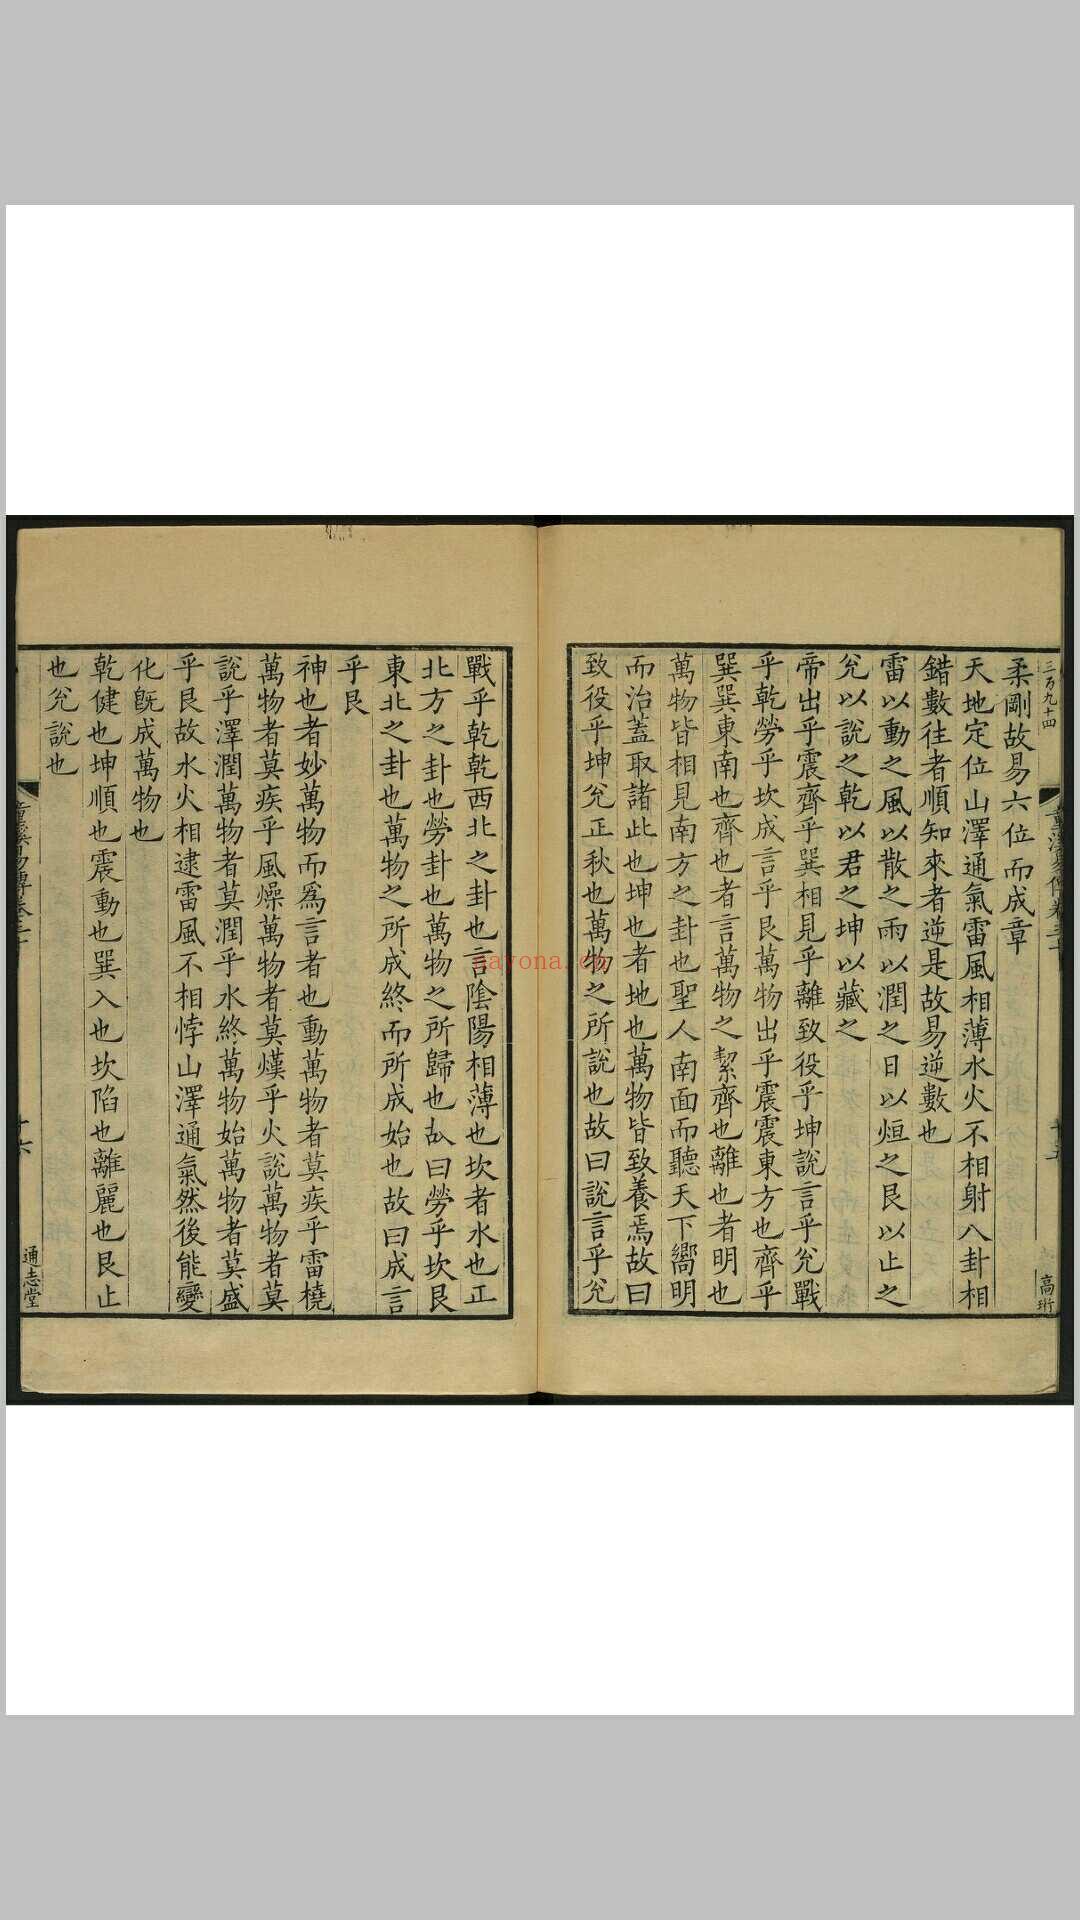 三百九十四
高珩
柔剛故易六位而成章
天地定位山澤通氣雷風相薄水火不相射八卦相
錯數往者順知來者逆是故易逆數也
雷以動之風以散之雨以潤之日以烜之艮以止之
兊以說之乾以君之坤以藏之
帝出乎震齊乎巽相見乎離致役乎坤說言乎兊戰
乎乾勞乎坎成言乎艮萬物出乎震震東方也齊乎
巽巽東南也齊也者言萬物之絜齊也離也者明也
萬物皆相見南方之卦也聖人南面而聽天下嚮明
而治蓋取諸此也坤也者地也萬物皆致養焉故曰
致役乎坤兊正秋也萬物之所說也故曰說言乎兊
戰乎乾乾西北之卦也言陰陽相薄也坎者水也正
北方之卦也勞卦也萬物之所歸也故曰勞乎坎艮
東北之卦也萬物之所成終而所成始也故曰成言
乎艮
神也者妙萬物而爲言者也動萬物者莫疾乎雷橈
萬物者莫疾乎風燥萬物者莫熯乎火說萬物者莫
說乎澤潤萬物者莫潤乎水終萬物始萬物者莫盛
乎艮故水火相逮雷風不相悖山澤通氣然後能變
化旣成萬物也
乾健也坤順也震動也巽入也坎陷也離麗也艮止
也兊說也
童溪易傳卷三十
十六
通志堂
nayona.cn